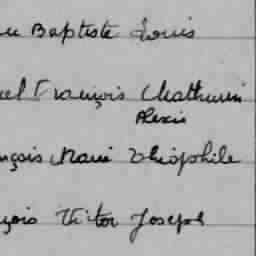 Baptiste Louis
François Mathurin
Alexis
nçois Marie Théophile
çois Victor Joseph